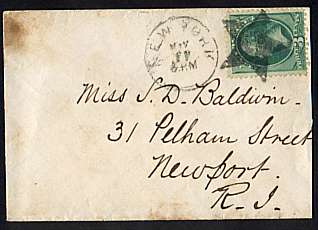 NEW YORK
MAY
11
PM
Miss S. D. Baldwin.
31 Pelham Street
Newport.
R. I.